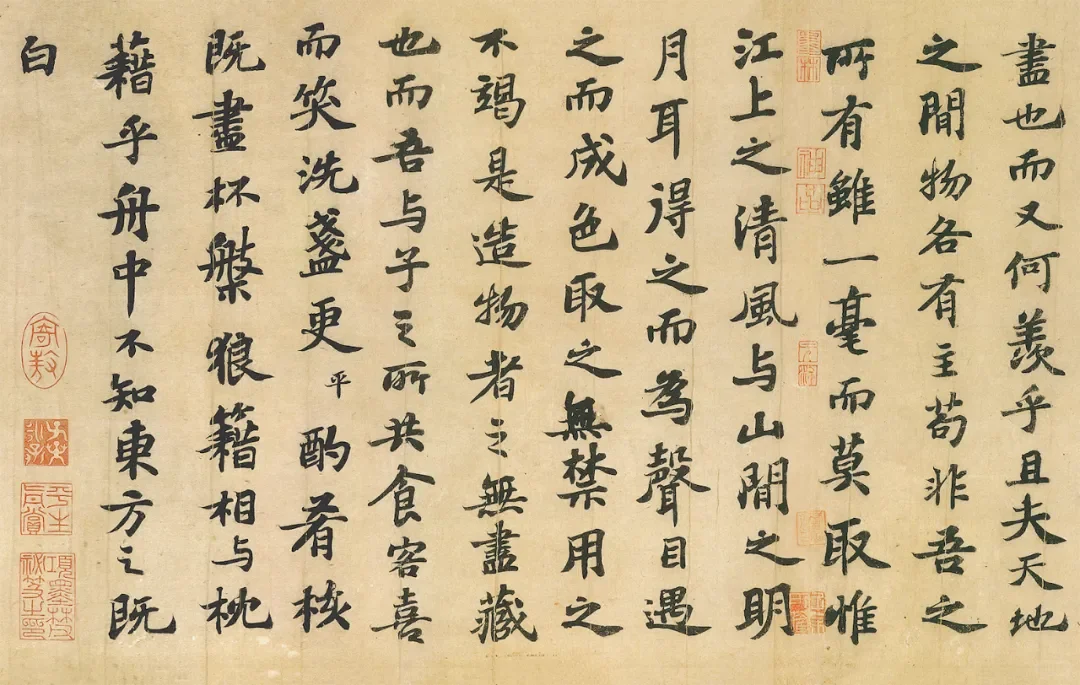 盡也而又何羨乎且夫天地
之間物各有主苟非吾之
所有雖一毫而莫取惟
江上之清風与山間之明
月耳得之而為聲目遇
之而成色取之無禁用之
不竭是造物者之無盡藏
也而吾与子之所共食客喜
而笑洗盞更平酌肴核
既盡杯盤狼籍相与枕
藉乎舟中不知東方之既
白